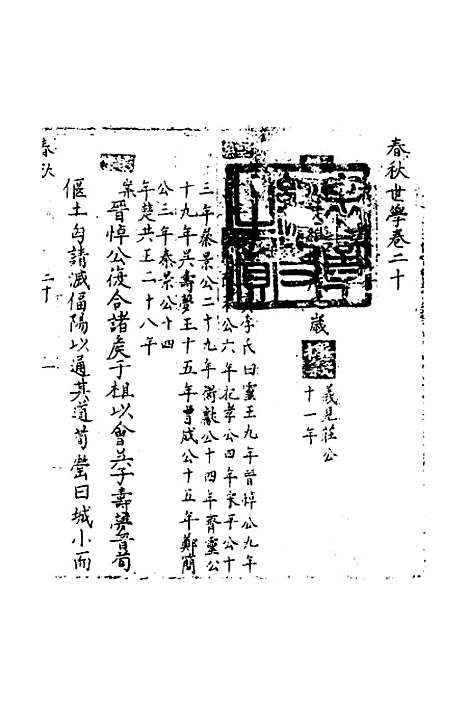 春秋世學卷二十
歲
義見莊公
十一年
李氏曰靈王九年晉悼公九年
公六年杞孝公四年宋平公十
三年蔡景公二十九年衛獻公十四年齊靈公
十九年吳壽夢王十五年曹成公十五年鄭簡
公三年秦景公十四
年楚共王二十八年
晉悼公復合諸侯于柤以會吳子壽夢晉荀
偃士匄請滅偪陽以通其道荀罃曰城小而
春秋 二十 一